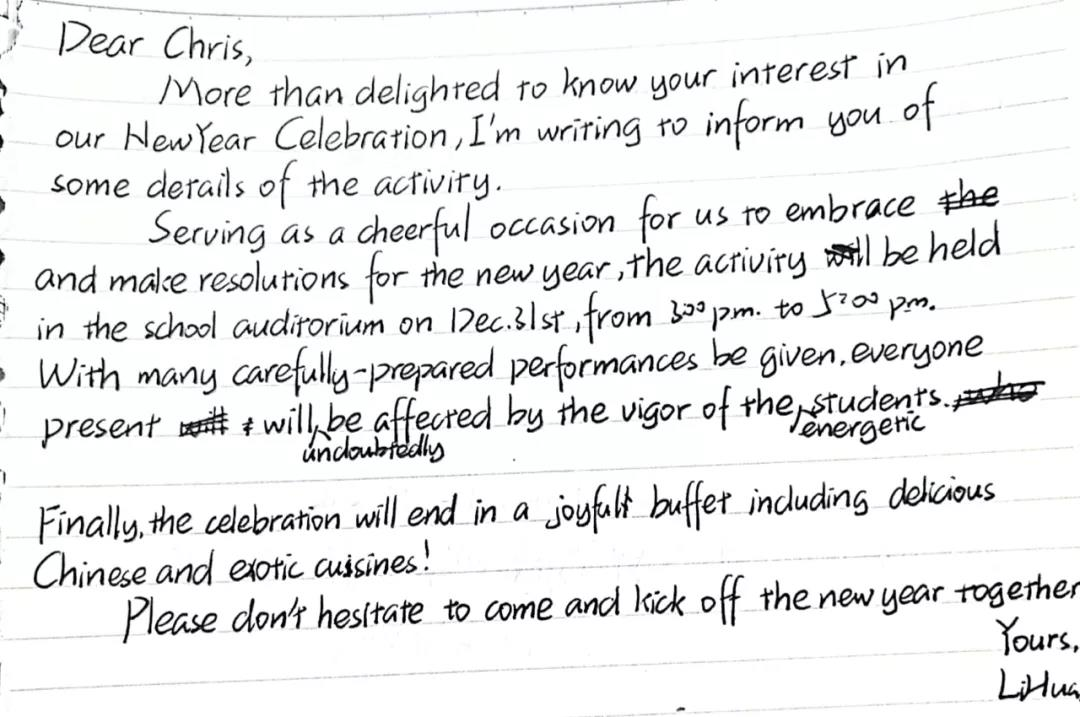 Dear Chris,
More than delighted to know your interest in
our New Year Celebration, I'm writing to inform you of
some details of the activity.
Serving as a cheerful occasion for us to embrace the
and make resolutions for the new year, the activity will be held
in the school auditorium on Dec.31st, from 3:00 p.m. to 5:00 pm.
With many carefully-prepared performances be given, everyone
present will be affected by the vigor of the students.
undoubtedly energetic
Finally, the celebration will end in a joyful buffet including delicious
Chinese and exotic cuisines!
Please don't hesitate to come and kick off the new year together
Yours,
LiHua